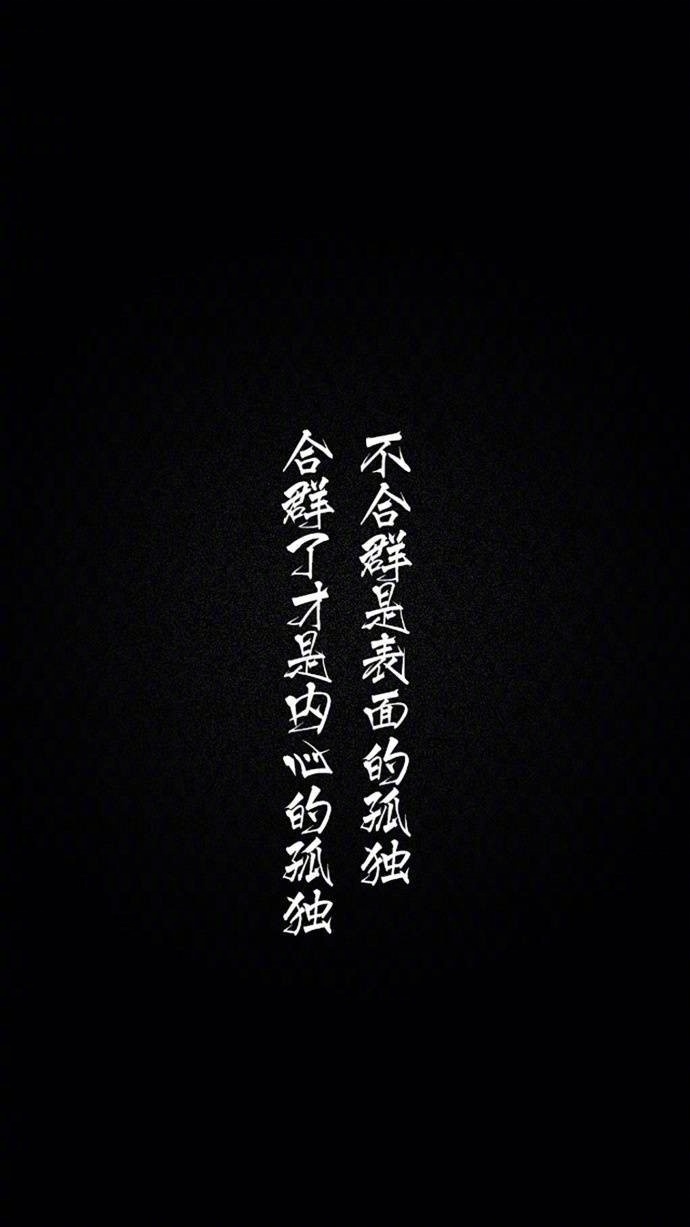 不合群是表面的孤独
合群了才是内心的孤独